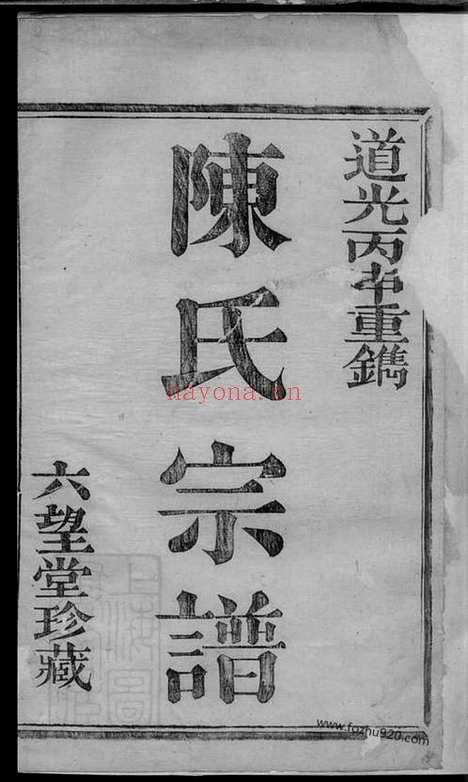 道光丙申重鐫
陳氏宗譜
六望堂珍藏
nayona.cn
www.fozhu920.com